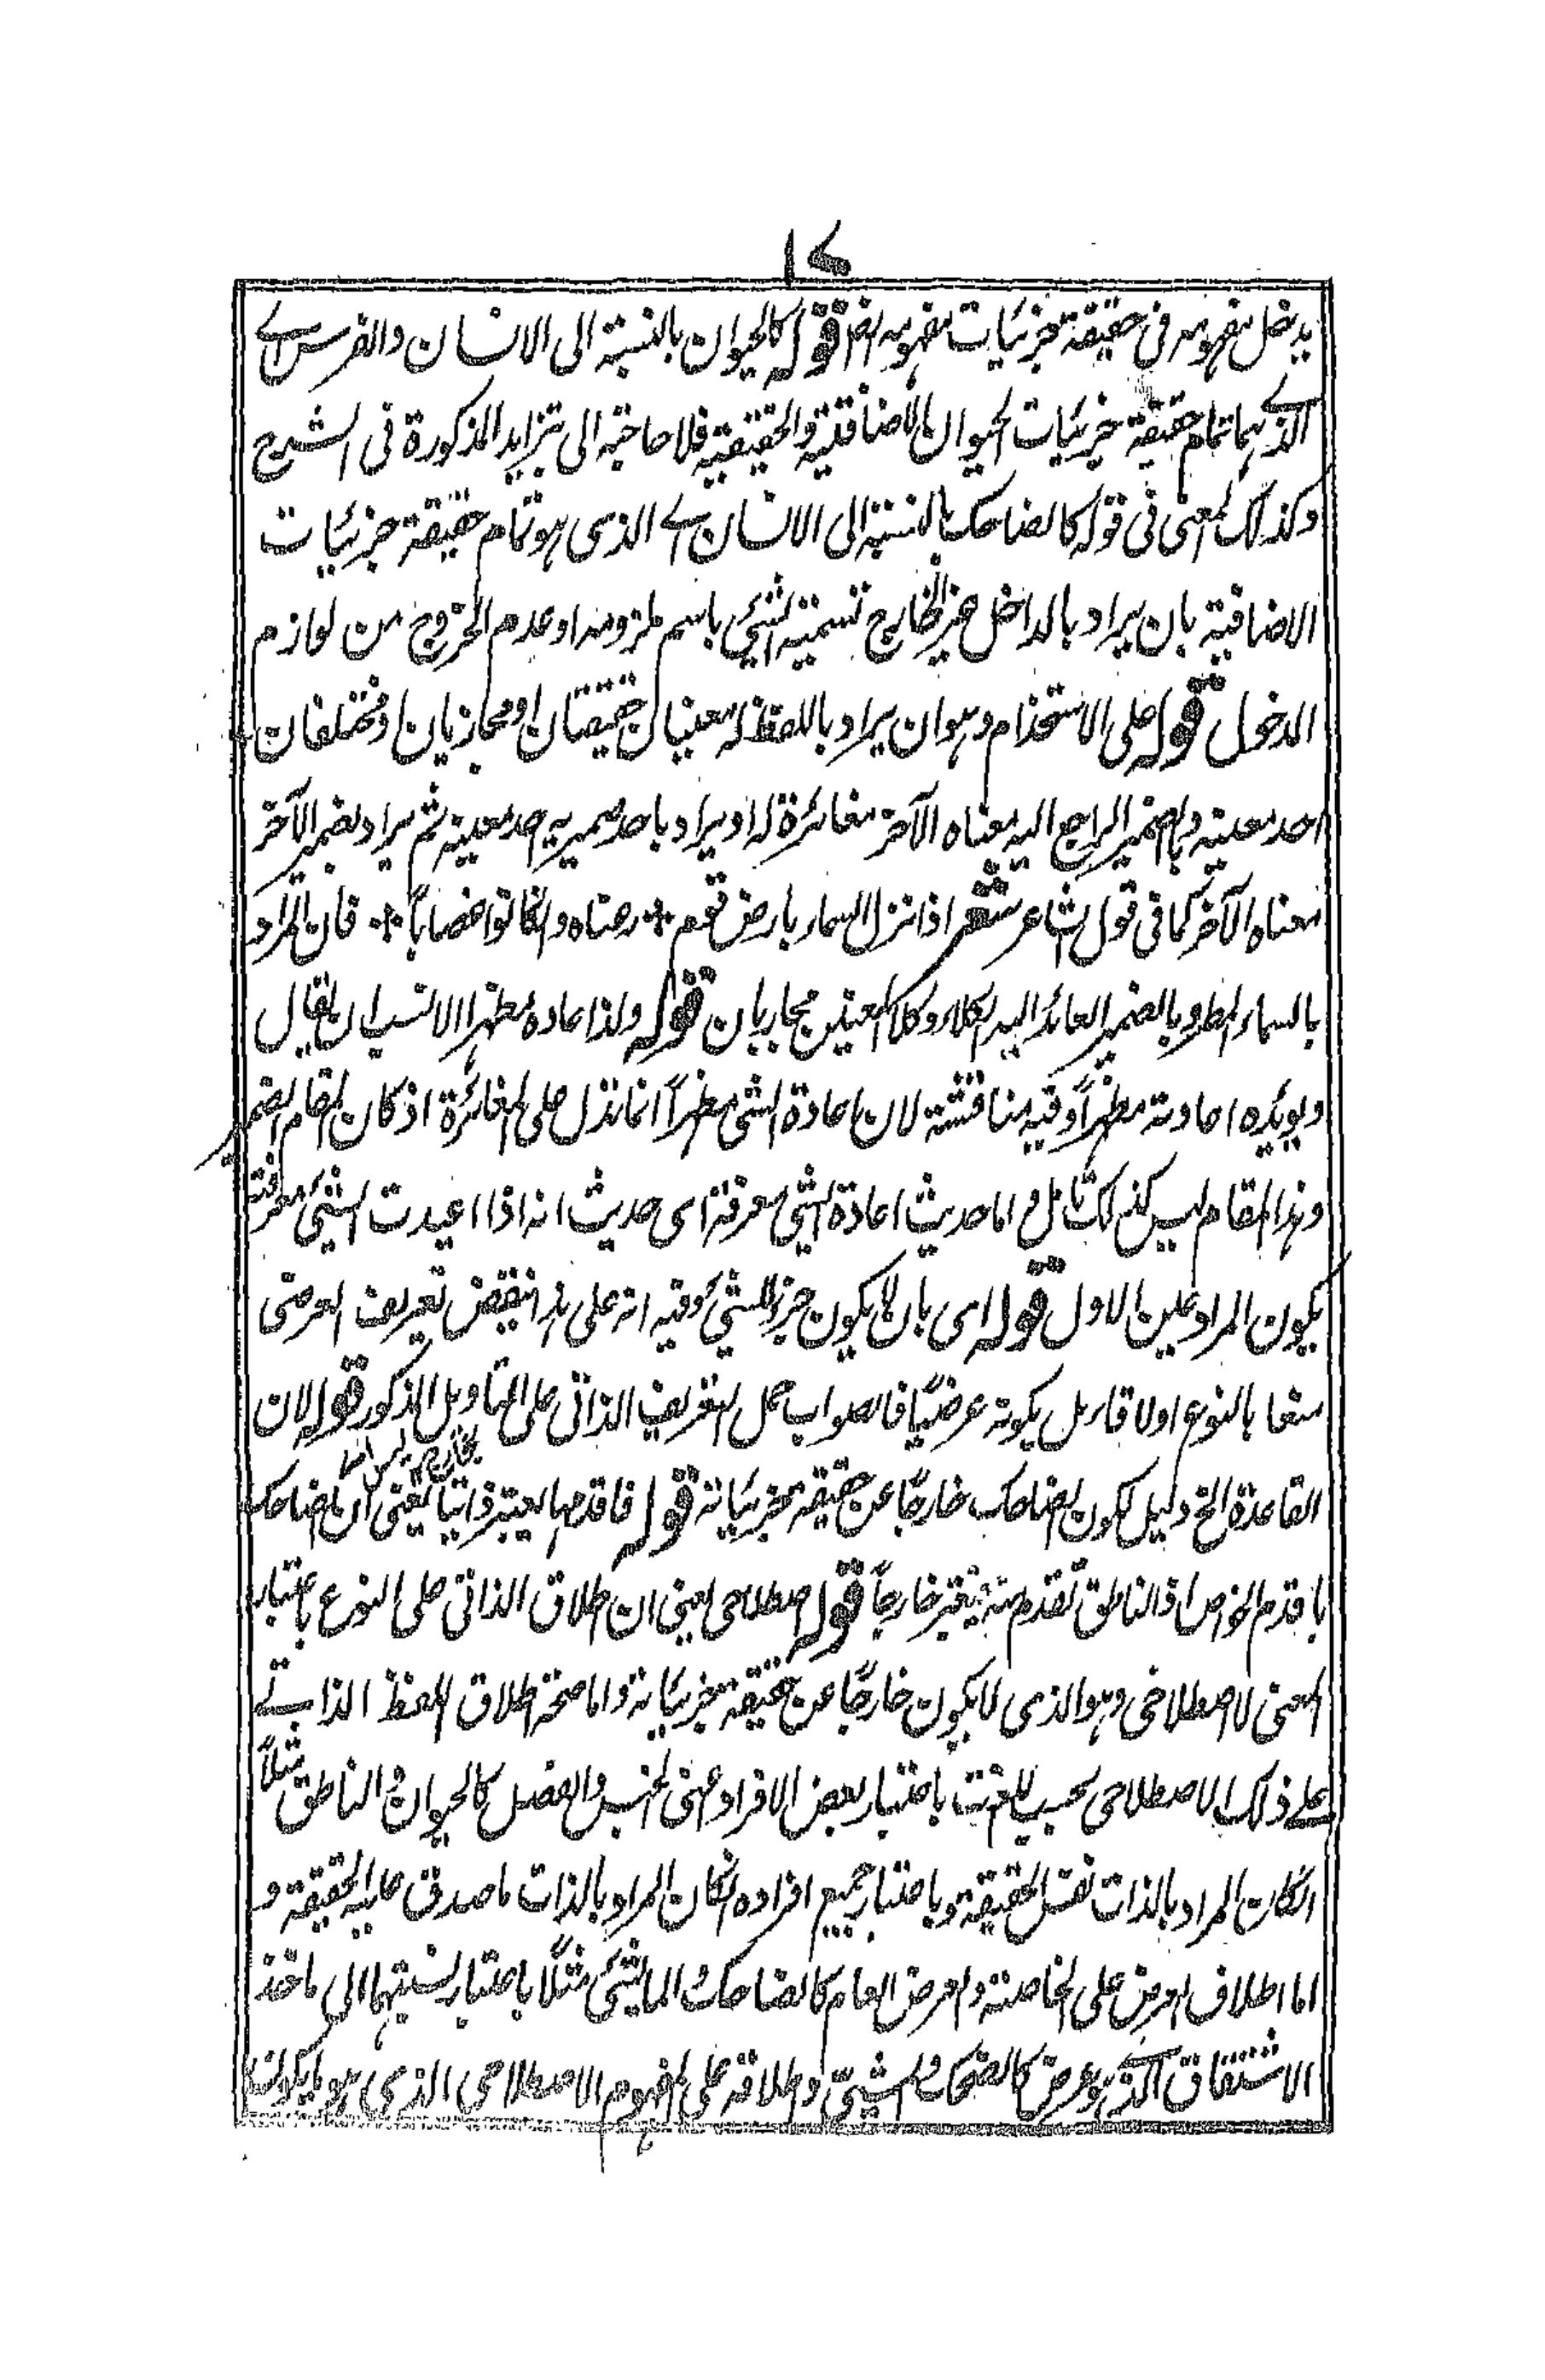 ١٧
يدخل مفهومه في حقيقة جزئيات مفهومه قوله كالحيوان بالنسبة الى الانسان والفرس اے
الذے هما تمام حقيقة جزئيات الحيوان الاضافية والحقيقية فلا حاجة الى تزايد المذكورة فى الشرح
وكذلك المعنى فى قوله كالضاحك بالنسبة الى الانسان اے الذى هو تمام حقيقة جزئيات
الاضافية بان يراد بالداخل غير الخارج تسمية الشئ باسم ملزومه او عدم الخروج من لوازم
الدخول قوله على الاستخدام وهو ان يراد باللفظ له معنيان حقيقتان او مجازيان او مختلفان
احد معنيه وبالضمير الراجع اليه معناه الآخر مغائرة له او يراد باحد ضميريه احد معنيه ثم يراد بضمير الآخر
معناه الآخر كما فى قول الشاعر شعر اذا نزل السماء بارض قوم ٭ رعيناه وان كانوا غضاباً ٭ فان المراد
بالسماء المطر وبالضمير العائد اليه الكلاء وكلا المعنيين مجازيان قوله ولذا اعاده مظهرا الانسب ان يقال
ويويده اعادته مظهراً وفيه مناقشة لان اعادة الشئ مظهراً انما تدل على المغائرة اذ كان المقام الضمير
وهذا المقام ليس كذلك تامل واما حديث اعادة الشئ معرفة اى حديث انه اذا اعيدت الشئ معرفة
يكون المراد عين الاول قوله اى بان لا يكون جزء الشئ وفيه انه على هذا ينتقض تعريف العرضى
منعا بالنوع اولا قائل بكونه عرضياً فالصواب حمل التعريف الذاتى على التاويل المذكور قوله لان
القاعدة الخ دليل لكون الضاحك خارجاً عن حقيقة جزئياته قوله فاقدمها يعتبر ذاتيا يعنى ان الضاحك
باقدم الخواص اذ الناطق تقدم منه يعتبر خارجاً قوله اصطلاحى يعنى ان اطلاق الذاتى على النوع باعتبار
المعنى الاصطلاحى وهو الذى لا يكون خارجاً عن حقيقة جزئياته واما صحة اطلاق اللفظ الذاتے
علے ذلك الاصطلاحى بحسب اللغة باعتبار بعض الافراد اعنى الجنس والفصل كالحيوان والناطق مثلاً
انكان المراد بالذات نفس الحقيقة وباعتبار جميع افراده انكان المراد بالذات ما صدق عليه الحقيقة و
اما اطلاق العرض على الخاصة والعرض العام كالضاحك والماشئ مثلاً باعتبار نسبتهما الى ماخذ
الاشتقاق الذے هو عرض كالضحك والمشى واطلاقه على المفهوم الاصطلاحى الذى هو ما يكون